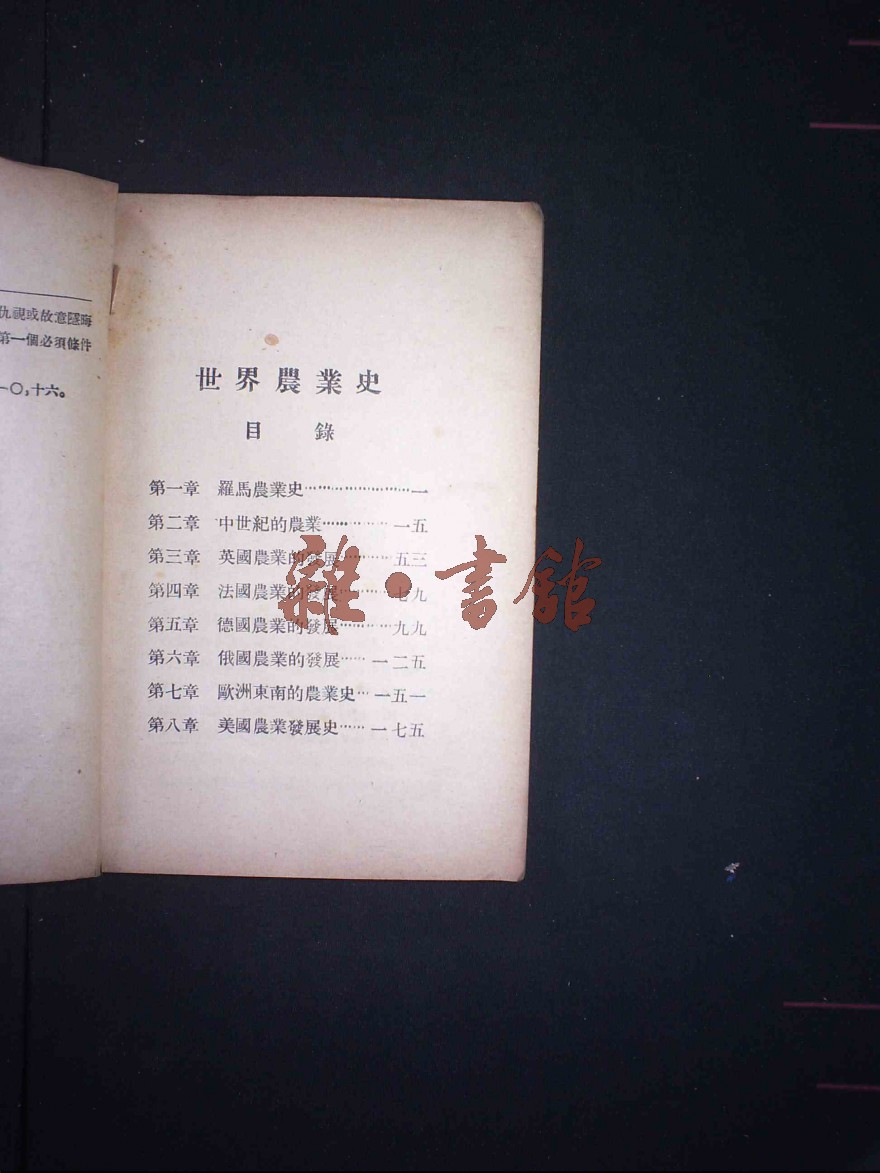 仇視或故意隱晦
第一個必須條件
一〇，十六。
世界農業史
目錄
第一章 羅馬農業史……………………一
第二章 中世紀的農業…………一五
第三章 英國農業的發展………五三
第四章 法國農業的發展………七九
第五章 德國農業的發展………九九
第六章 俄國農業的發展……一二五
第七章 歐洲東南的農業史…一五一
第八章 美國農業發展史……一七五
雜·書館